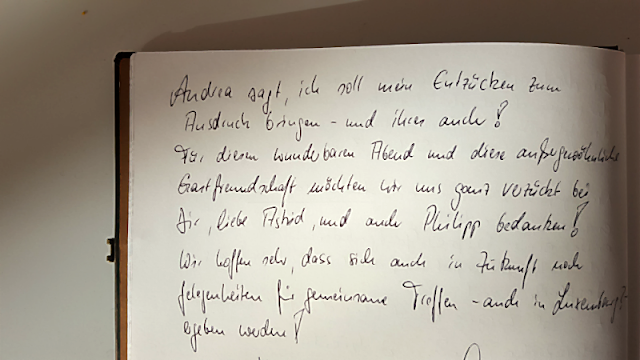 Andrea sagt, ich soll mein Entzücken zum
Ausdruck bringen - und ihres auch!
Für diesen wunderbaren Abend und diese außergewöhnliche
Gastfreundschaft möchten wir uns ganz verzückt bei
Dir, liebe Astrid, und auch Philipp bedanken!
Wir hoffen sehr, dass sich auch in Zukunft noch
Gelegenheiten für gemeinsame Treffen - auch in Luxemburg? -
ergeben werden!